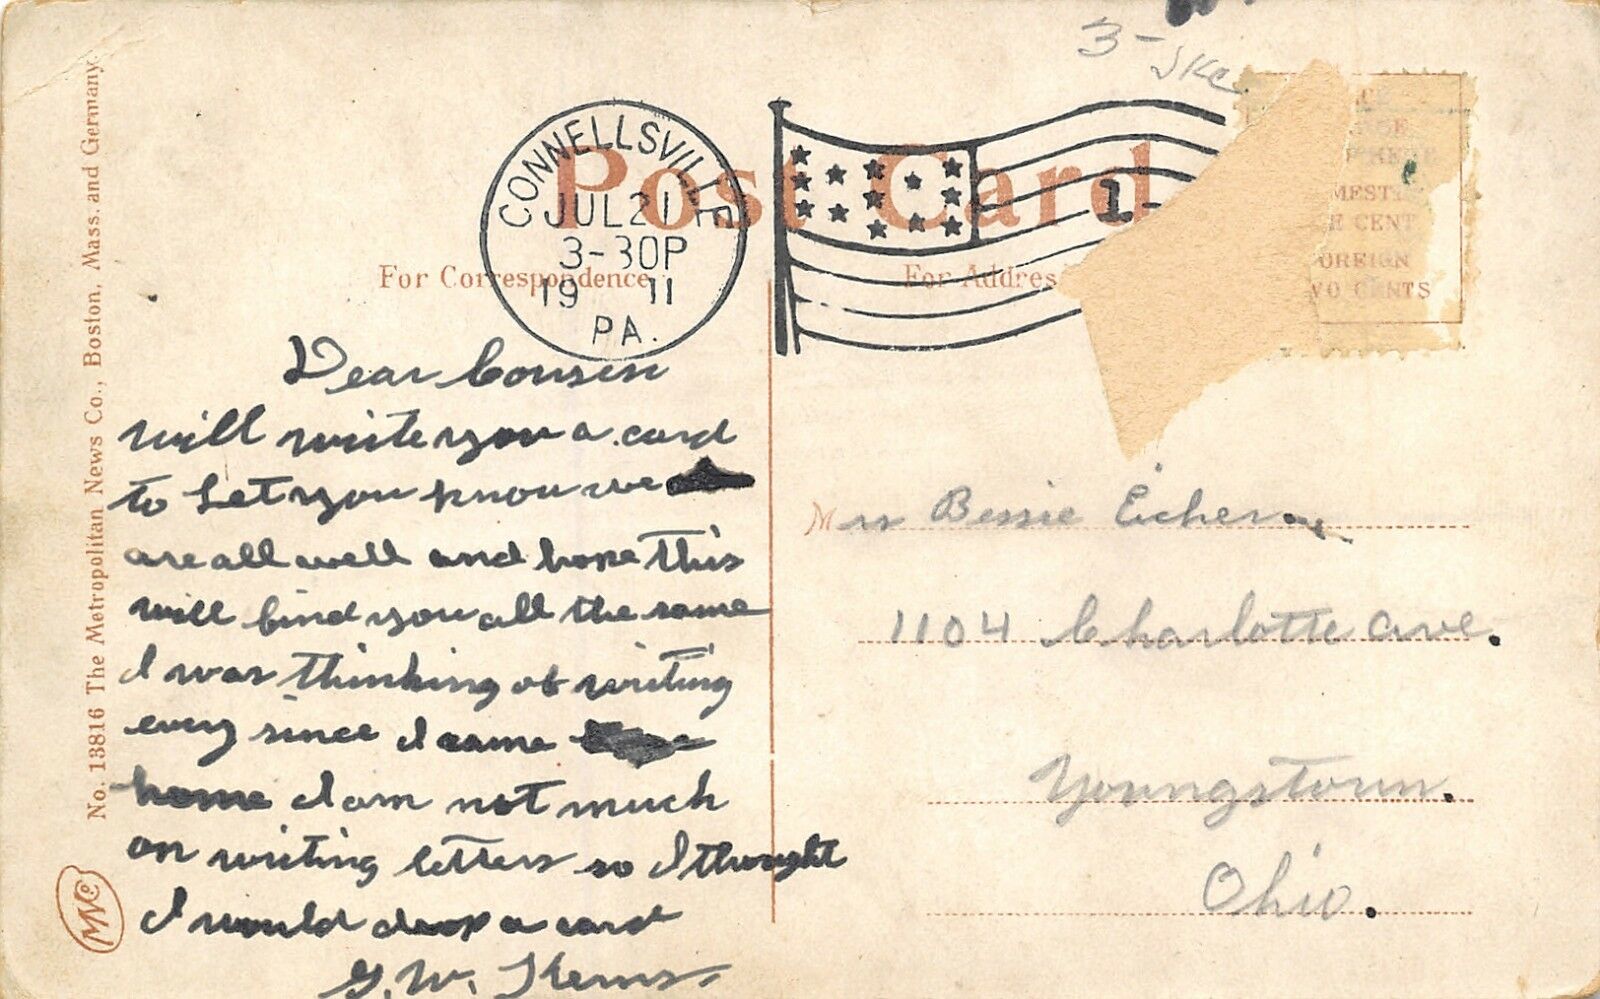 3-
CONNELLSVILLE
JUL 21
3-30P
19 11
PA.
Post Card
1
For Correspondence
For Address
MEST
E CENT
OREIGN
WO CENTS
No. 13816 The Metropolitan News Co., Boston, Mass. and Germany.
MNCo
Dear Cousin
will write you a card
to Let you know we
are all well and hope this
will find you all the same
I was thinking of writing
every since I came
home I am not much
on writing letters so I thought
I would drop a card
G. W.
Mrs Bessie Eicher
1104 Charlotte ave.
Youngstown.
Ohio.